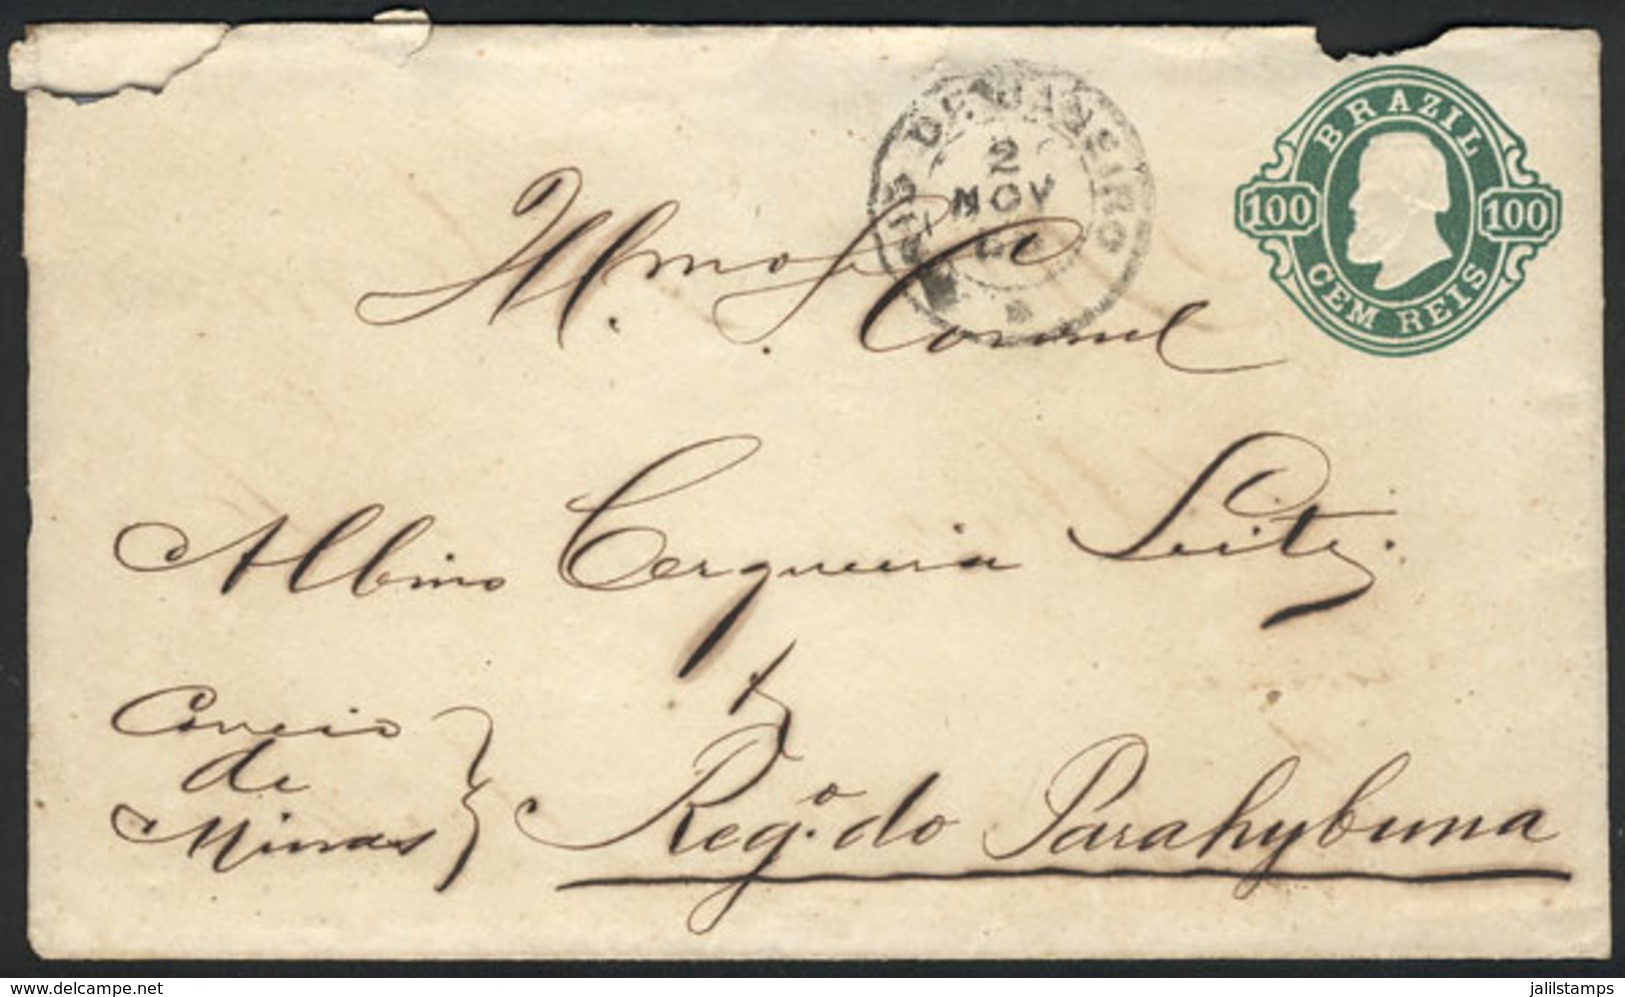 BRAZIL
100 100
CEM REIS
DE JANEIRO
2
NOV
Illmo Sr.
Coronel
Albino Cerqueira Leite.
Correio
de
Minas
Rego. do Parahybuna
www.delcampe.net
jalilstamps